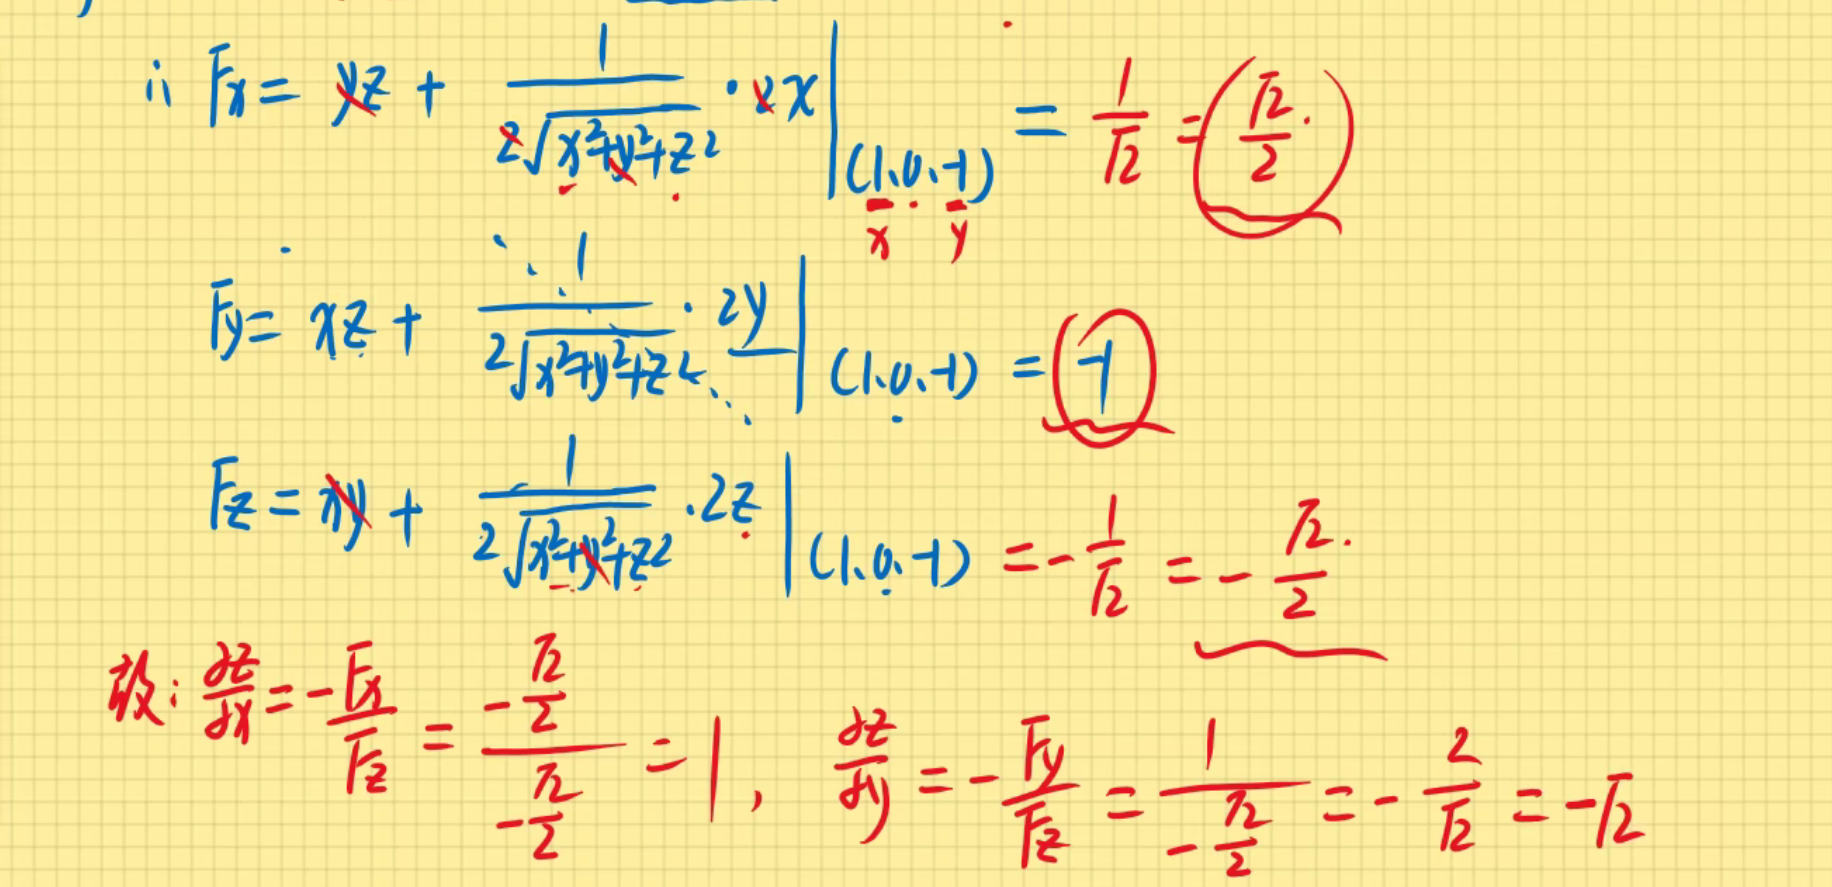 i, Fx = yz + 1/(2√(x²+y²+z²)) · 2x |(1,0,-1) = 1/√2 = √2/2
x y
Fy = xz + 1/(2√(x²+y²+z²)) · 2y |(1,0,-1) = -1
Fz = xy + 1/(2√(x²+y²+z²)) · 2z |(1,0,-1) = -1/√2 = -√2/2
故: ∂z/∂x = -Fx/Fz = (-√2/2)/(-√2/2) = 1, ∂z/∂y = -Fy/Fz = 1/(-√2/2) = -2/√2 = -√2